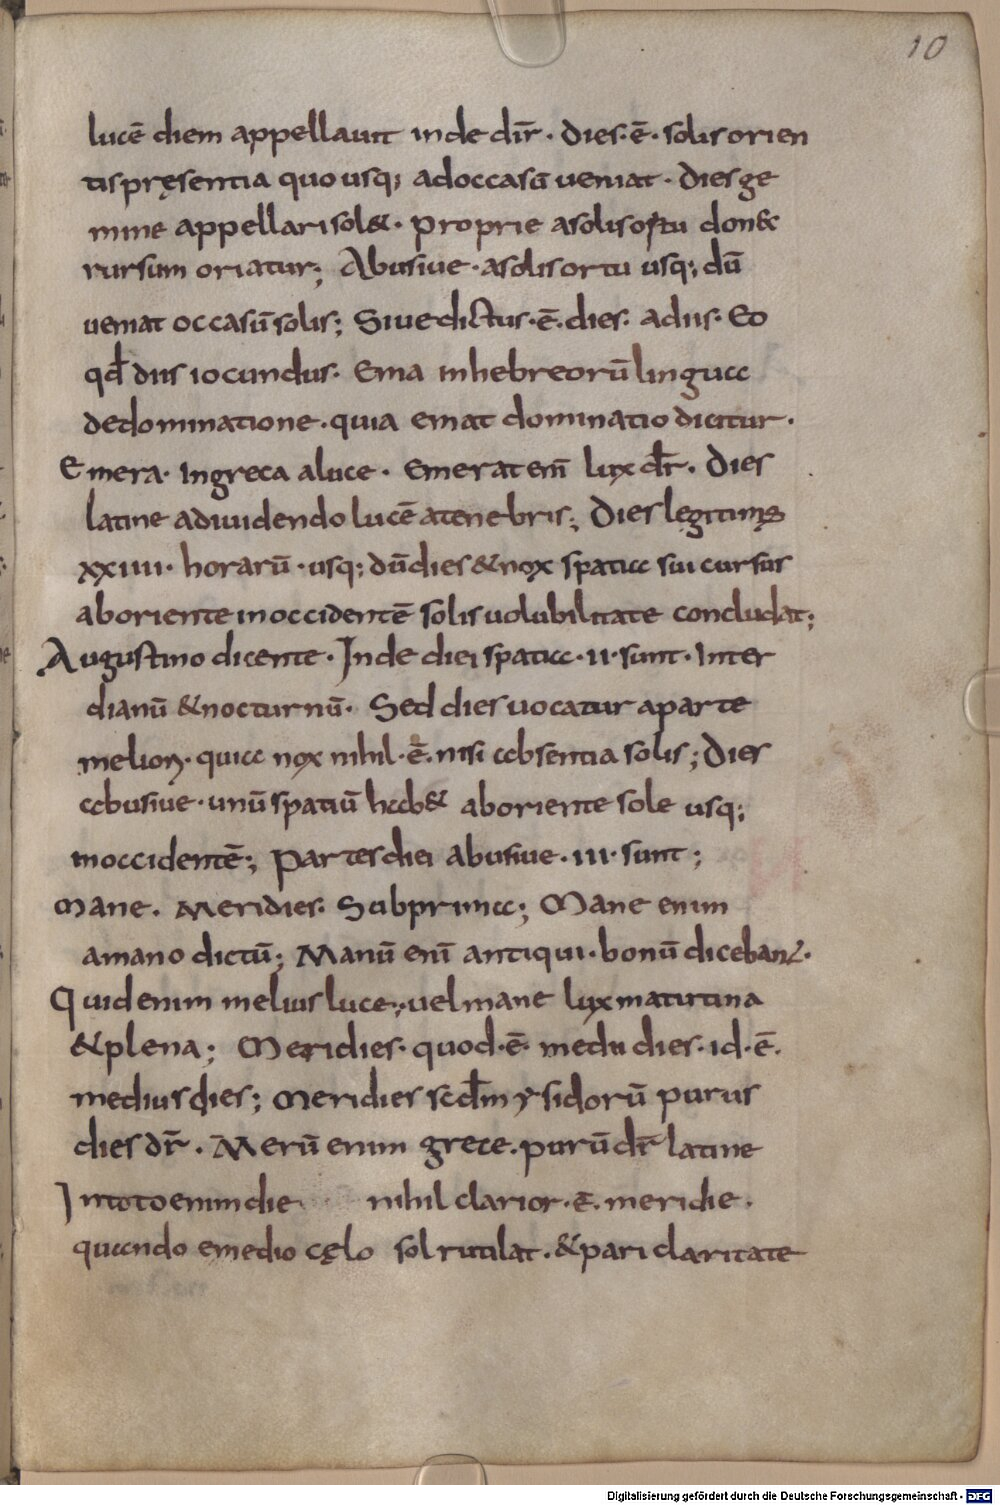 10
lucē diem appellauit inde dir̄· dies·ē· solis orien
tis pręsentia quo usq; ad occasū ueniat· dies ge
mine appellari sol&· proprie a solis ortu don&
rursum oriatur; Abusiue· a solis ortu usq; dū
ueniat occasū solis; Siue dictus·ē· dies· a diis· Eo
qd̄ diis iocundus· Ema in hebreorū lingua
de dominatione· quia emat dominatio dicitur·
Emera· in greca a luce· Emerat em̄ lux dr̄· dies
latine a diuidendo lucē a tenebris; Dies legitimus
xxiiii· horarū· usq; dū dies & nox spatia sui cursus
ab oriente in occidentē solis uolubilitate concludat;
Augustino dicente· Inde diei spatia·ii·sunt· Inter
dianū & nocturnū· Sed dies uocatur a parte
melior̄· quia nox nihil·ē· nisi absentia solis; Dies
abusiue· unū spatiū hab& ab oriente sole usq;
in occidentē; Partes diei abusiue·iii·sunt;
Mane· Meridies· Subprima; Mane enim
a mano dictū; Manū eni̅ antiqui· bonū diceban̄t·
Quid enim melius luce; uel mane lux matutina
& plena; Meridies· quod·ē· medii dies· id·ē·
medius dies; Meridies scd̄m ysidorū purus
dies dr̄· Merū enim grece· purū dr̄ latine
In toto enim die nihil clarior·ē· meridie·
quando e medio cęlo sol rutilat· & pari claritate
Digitalisierung gefördert durch die Deutsche Forschungsgemeinschaft - DFG